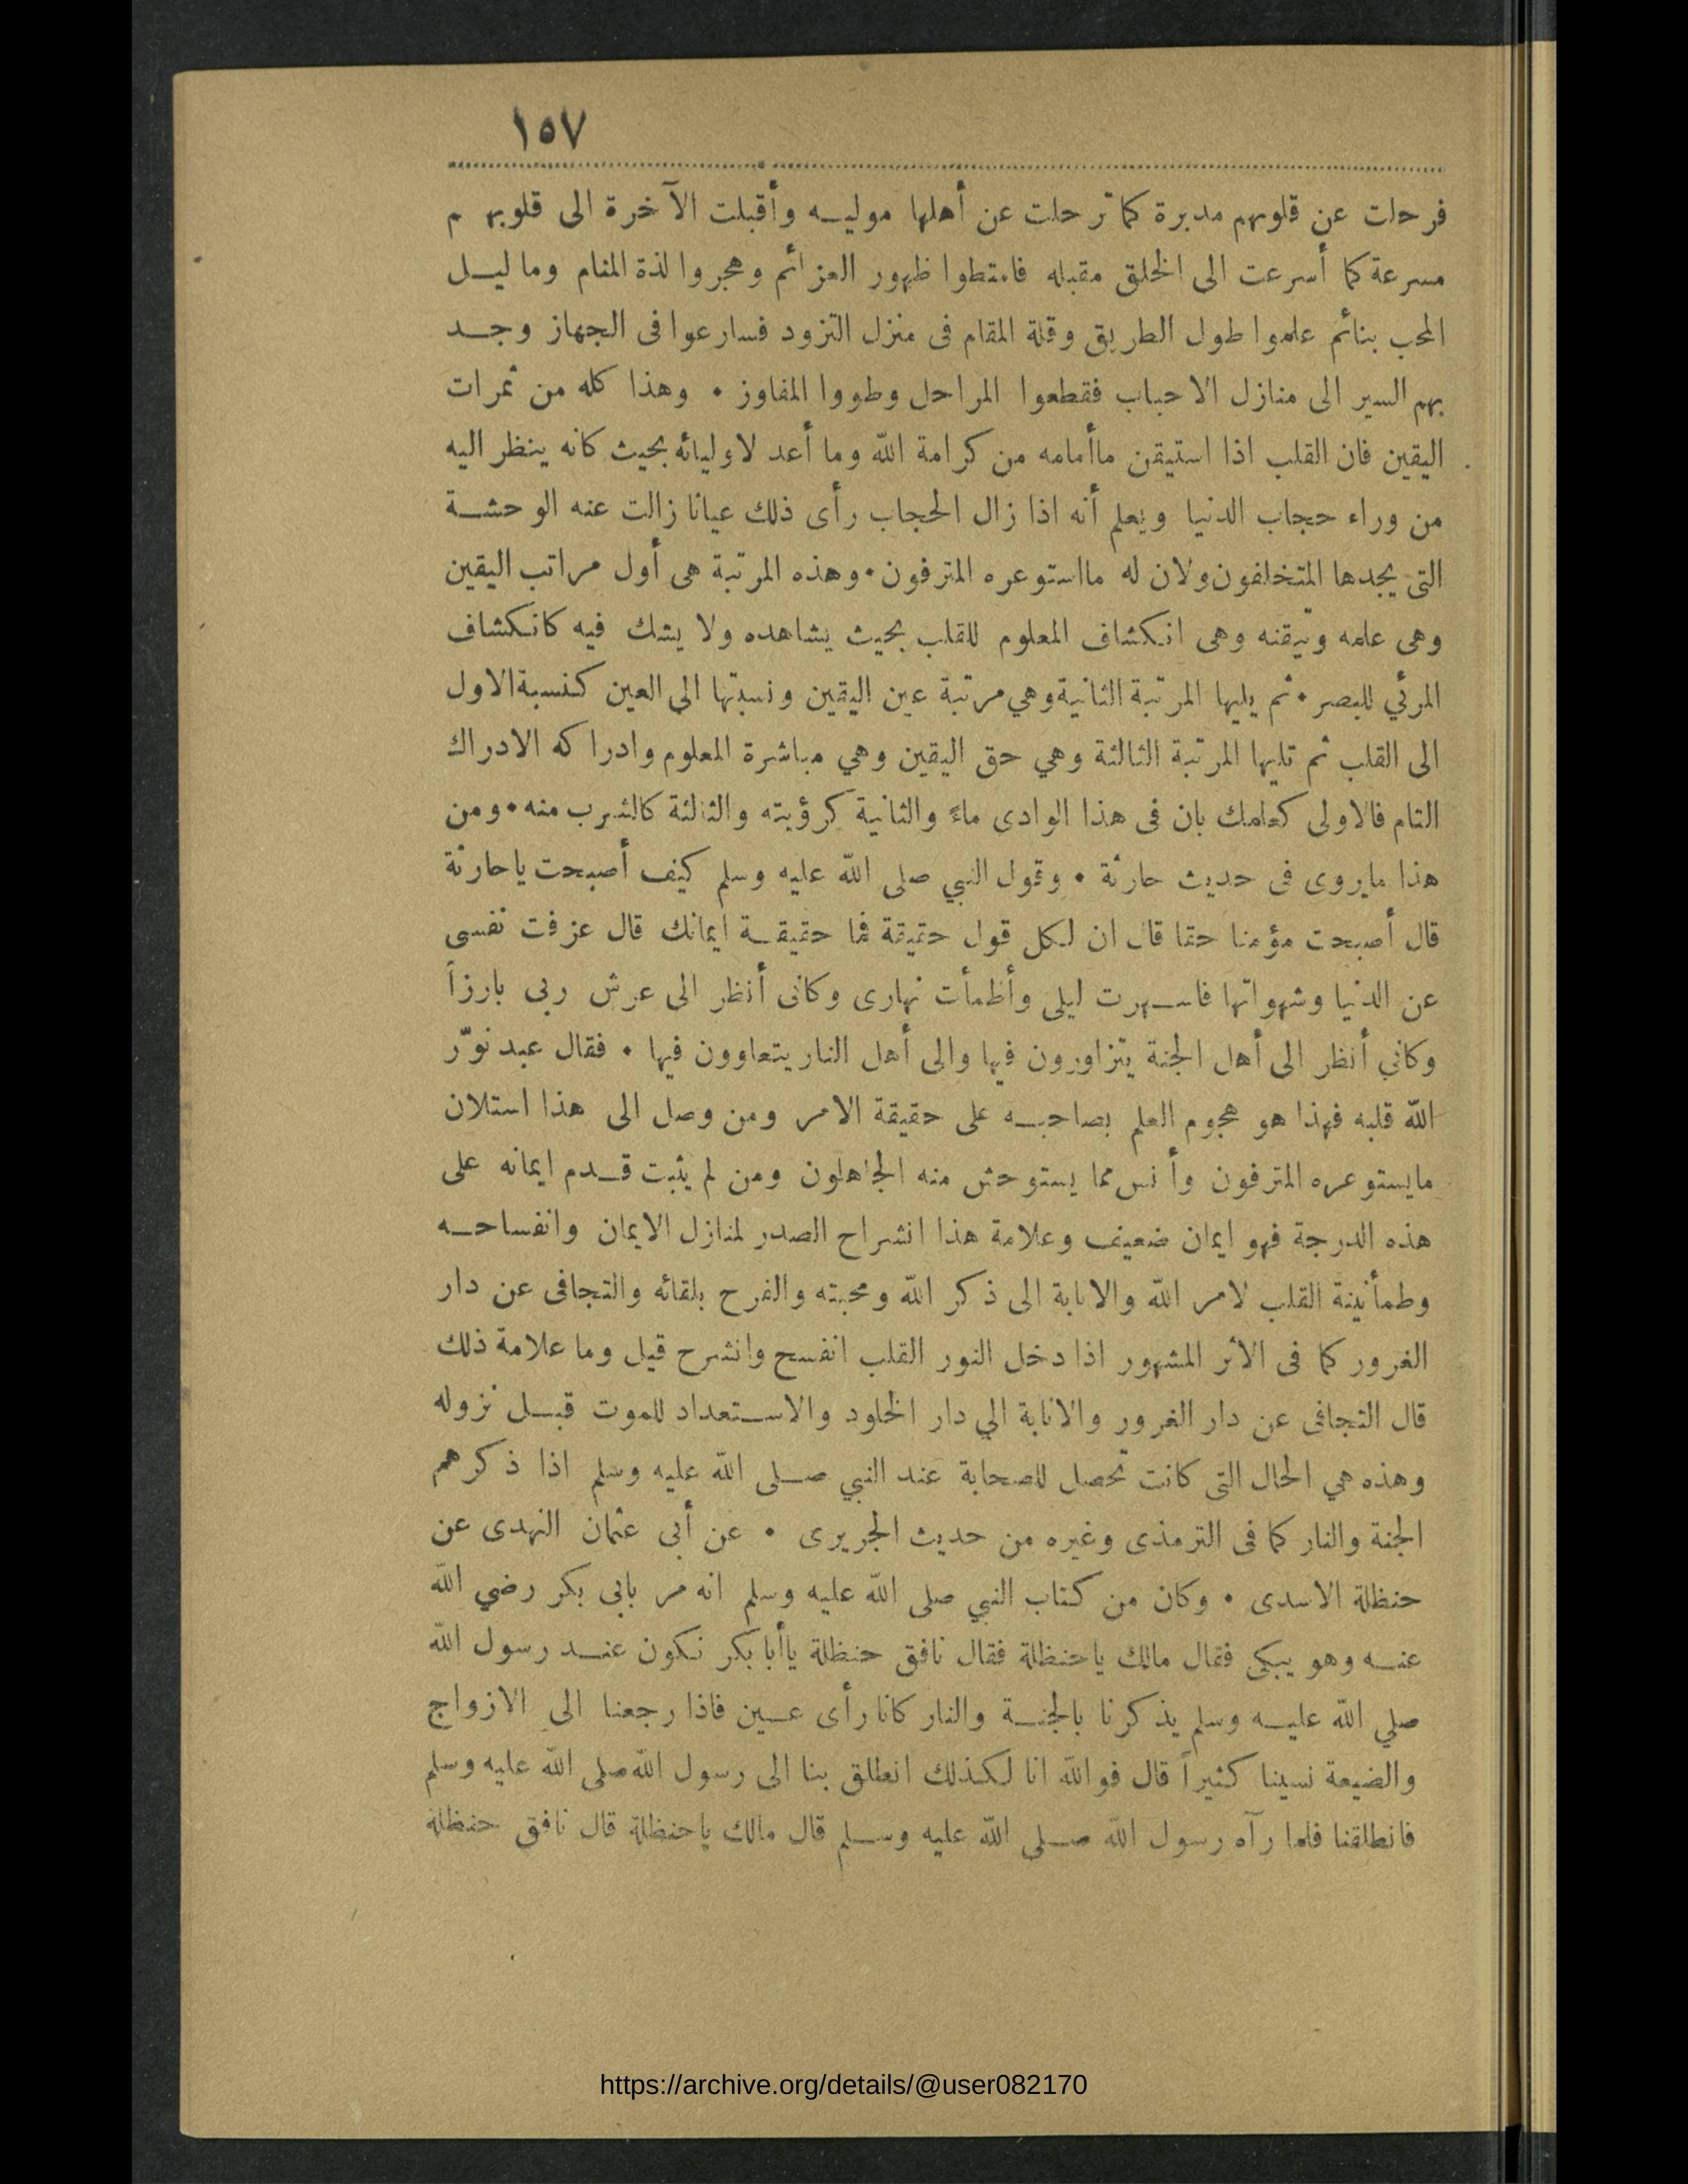 ١٥٧
فرحلت عن قلوبهم مدبرة كما ترحلت عن أهلها موليه وأقبلت الآخرة الى قلوبهم
مسرعة كما أسرعت الى الخلق مقبله فامتطوا ظهور العزائم وهجروا لذة المنام وما ليل
المحب بنائم علموا طول الطريق وقلة المقام فى منزل التزود فسارعوا فى الجهاز وجد
بهم السير الى منازل الاحباب فقطعوا المراحل وطووا المفاوز • وهذا كله من ثمرات
اليقين فان القلب اذا استيقن ماأمامه من كرامة الله وما أعد لاوليائه بحيث كانه ينظر اليه
من وراء حجاب الدنيا ويعلم أنه اذا زال الحجاب رأى ذلك عيانا زالت عنه الوحشة
التى يجدها المتخلفون ولان له مااستوعره المترفون • وهذه المرتبة هى أول مراتب اليقين
وهى علمه وتيقنه وهى انكشاف المعلوم للقلب بحيث يشاهده ولا يشك فيه كانكشاف
المرئي للبصر • ثم يليها المرتبة الثانية وهي مرتبة عين اليقين ونسبتها الى العين كنسبة الاول
الى القلب ثم تليها المرتبة الثالثة وهي حق اليقين وهي مباشرة المعلوم وادراكه الادراك
التام فالاولى كعلمك بان فى هذا الوادى ماءً والثانية كرؤيته والثالثة كالشرب منه • ومن
هذا مايروى فى حديث حارثة • وقول النبي صلى الله عليه وسلم كيف أصبحت ياحارثة
قال أصبحت مؤمنا حقا قال ان لكل قول حقيقة فما حقيقة ايمانك قال عزفت نفسى
عن الدنيا وشهواتها فاسهرت ليلى وأظمأت نهارى وكانى أنظر الى عرش ربى بارزاً
وكاني أنظر الى أهل الجنة يتزاورون فيها والى أهل النار يتعاوون فيها • فقال عبد نوّر
الله قلبه فهذا هو هجوم العلم بصاحبه على حقيقة الامر ومن وصل الى هذا استلان
مايستوعره المترفون وأنس مما يستوحش منه الجاهلون ومن لم يثبت قدم ايمانه على
هذه الدرجة فهو ايمان ضعيف وعلامة هذا انشراح الصدر لمنازل الايمان وانفساحه
وطمأنينة القلب لامر الله والانابة الى ذكر الله ومحبته والفرح بلقائه والتجافى عن دار
الغرور كما فى الاثر المشهور اذا دخل النور القلب انفسح وانشرح قيل وما علامة ذلك
قال التجافى عن دار الغرور والانابة الي دار الخلود والاستعداد للموت قبل نزوله
وهذه هي الحال التى كانت تحصل للصحابة عند النبي صلى الله عليه وسلم اذا ذكرهم
الجنة والنار كما فى الترمذى وغيره من حديث الجريرى • عن أبى عثمان النهدى عن
حنظلة الاسدى • وكان من كتاب النبي صلى الله عليه وسلم انه مر بابى بكر رضي الله
عنه وهو يبكى فقال مالك ياحنظلة فقال نافق حنظلة ياأبا بكر نكون عند رسول الله
صلي الله عليه وسلم يذكرنا بالجنة والنار كانا رأى عين فاذا رجعنا الى الازواج
والضيعة نسينا كثيراً قال فوالله انا لكذلك انطلق بنا الى رسول الله صلى الله عليه وسلم
فانطلقنا فلما رآه رسول الله صلى الله عليه وسلم قال مالك ياحنظلة قال نافق حنظلة
https://archive.org/details/@user082170